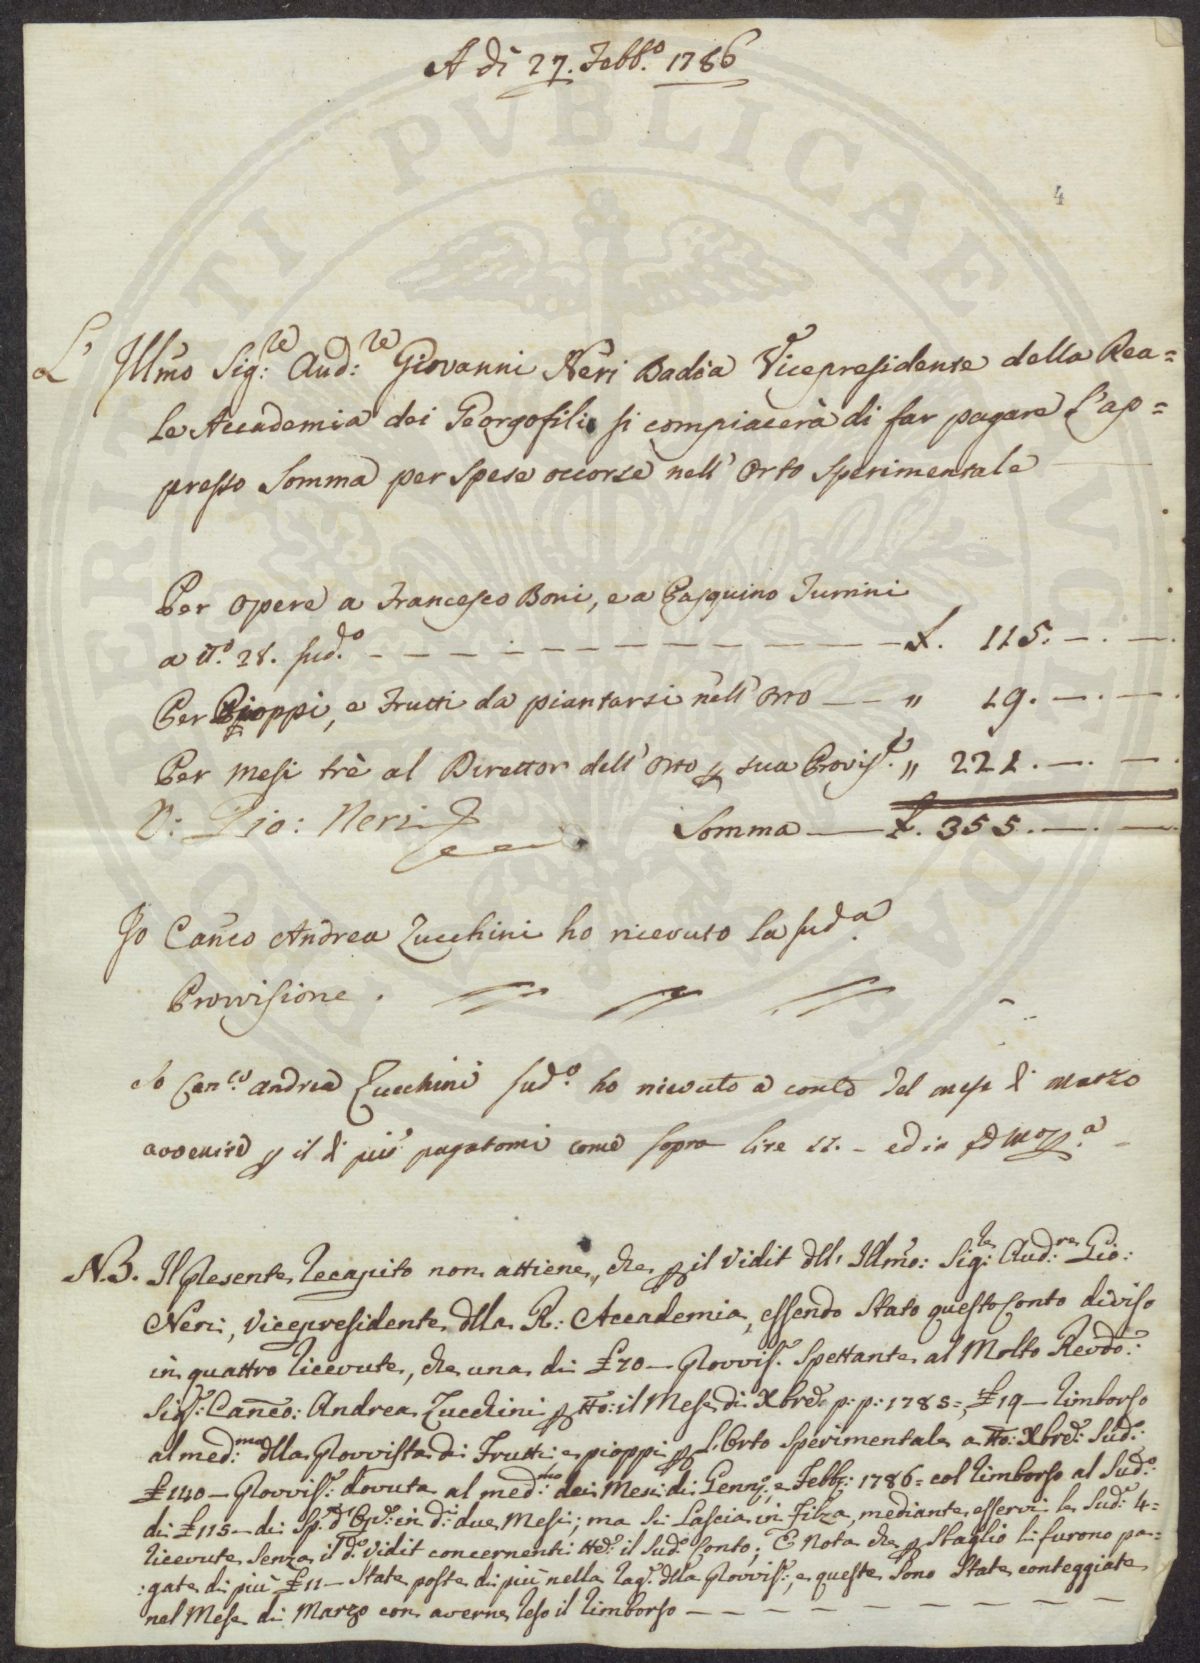 A dì 27. Febb.o 1786
4
L' Illmo Sig:re Aud:re Giovanni Neri Badia Vicepresidente della Rea=
le Accademia dei Georgofili si compiacerà di far pagare l'ap=
presso Somma per spese occorse nell' Orto sperimentale
Per opere a Francesco Boni, e a Pasquino Turrini
a tt.o 28. sud.o — — — — — — — — £. 115. —. —.
Per Pioppi, e Frutti da piantarsi nell' Orto — — " 19. —. —.
Per Mesi trè al Direttor dell' Orto p sua Provis.e " 221. —. —.
V: Gio: Neri
Somma — £. 355. —. —.
Io Canco Andrea Zucchini ho ricevuto la sud.a
Provvisione.
Io Can.co Andrea Zucchini sud.o ho ricevuto a conto del mese di Marzo
avvenire p il di più pagatomi come sopra lire 11. – ed in
N.B. Il presente recapito non attiene, che p il Vidit dll' Illmo: Sig:re Aud:re Gio:
Neri, Vicepresidente dlla R: Accademia, essendo Stato questo Conto diviso
in quattro ricevute, che una di £ 70 — Provvis.e Spettante al Molto Revdo:
Sig.r: Canco: Andrea Zucchini p tto: il Mese di Xbre p: p: 1785 =, £ 19 — rimborso
al med:mo dlla Provvista di Frutti e pioppi p l'Orto Sperimentale a tto: Xbre: Sud.o:
£ 140 — Provvis.e: dovuta al med:mo dei Mesi di Genn.o, e Febb.o: 1786 = col rimborso al Sud.o:
di £ 115 — di Sp.e d'Op.e: in d.i: due Mesi; ma si Lascia in Filza, mediante esservi le Sud.e 4 =
ricevute senza il d.o: Vidit concernenti tto: il Sud.o Conto; E Nota che p Sbaglio li furono pa=
:gate di più £ 11 — State poste di più nella rag.e: dlla Provvis.e:, e queste Sono State conteggiate
nel Mese di Marzo con averne reso il rimborso — — — — — — — —